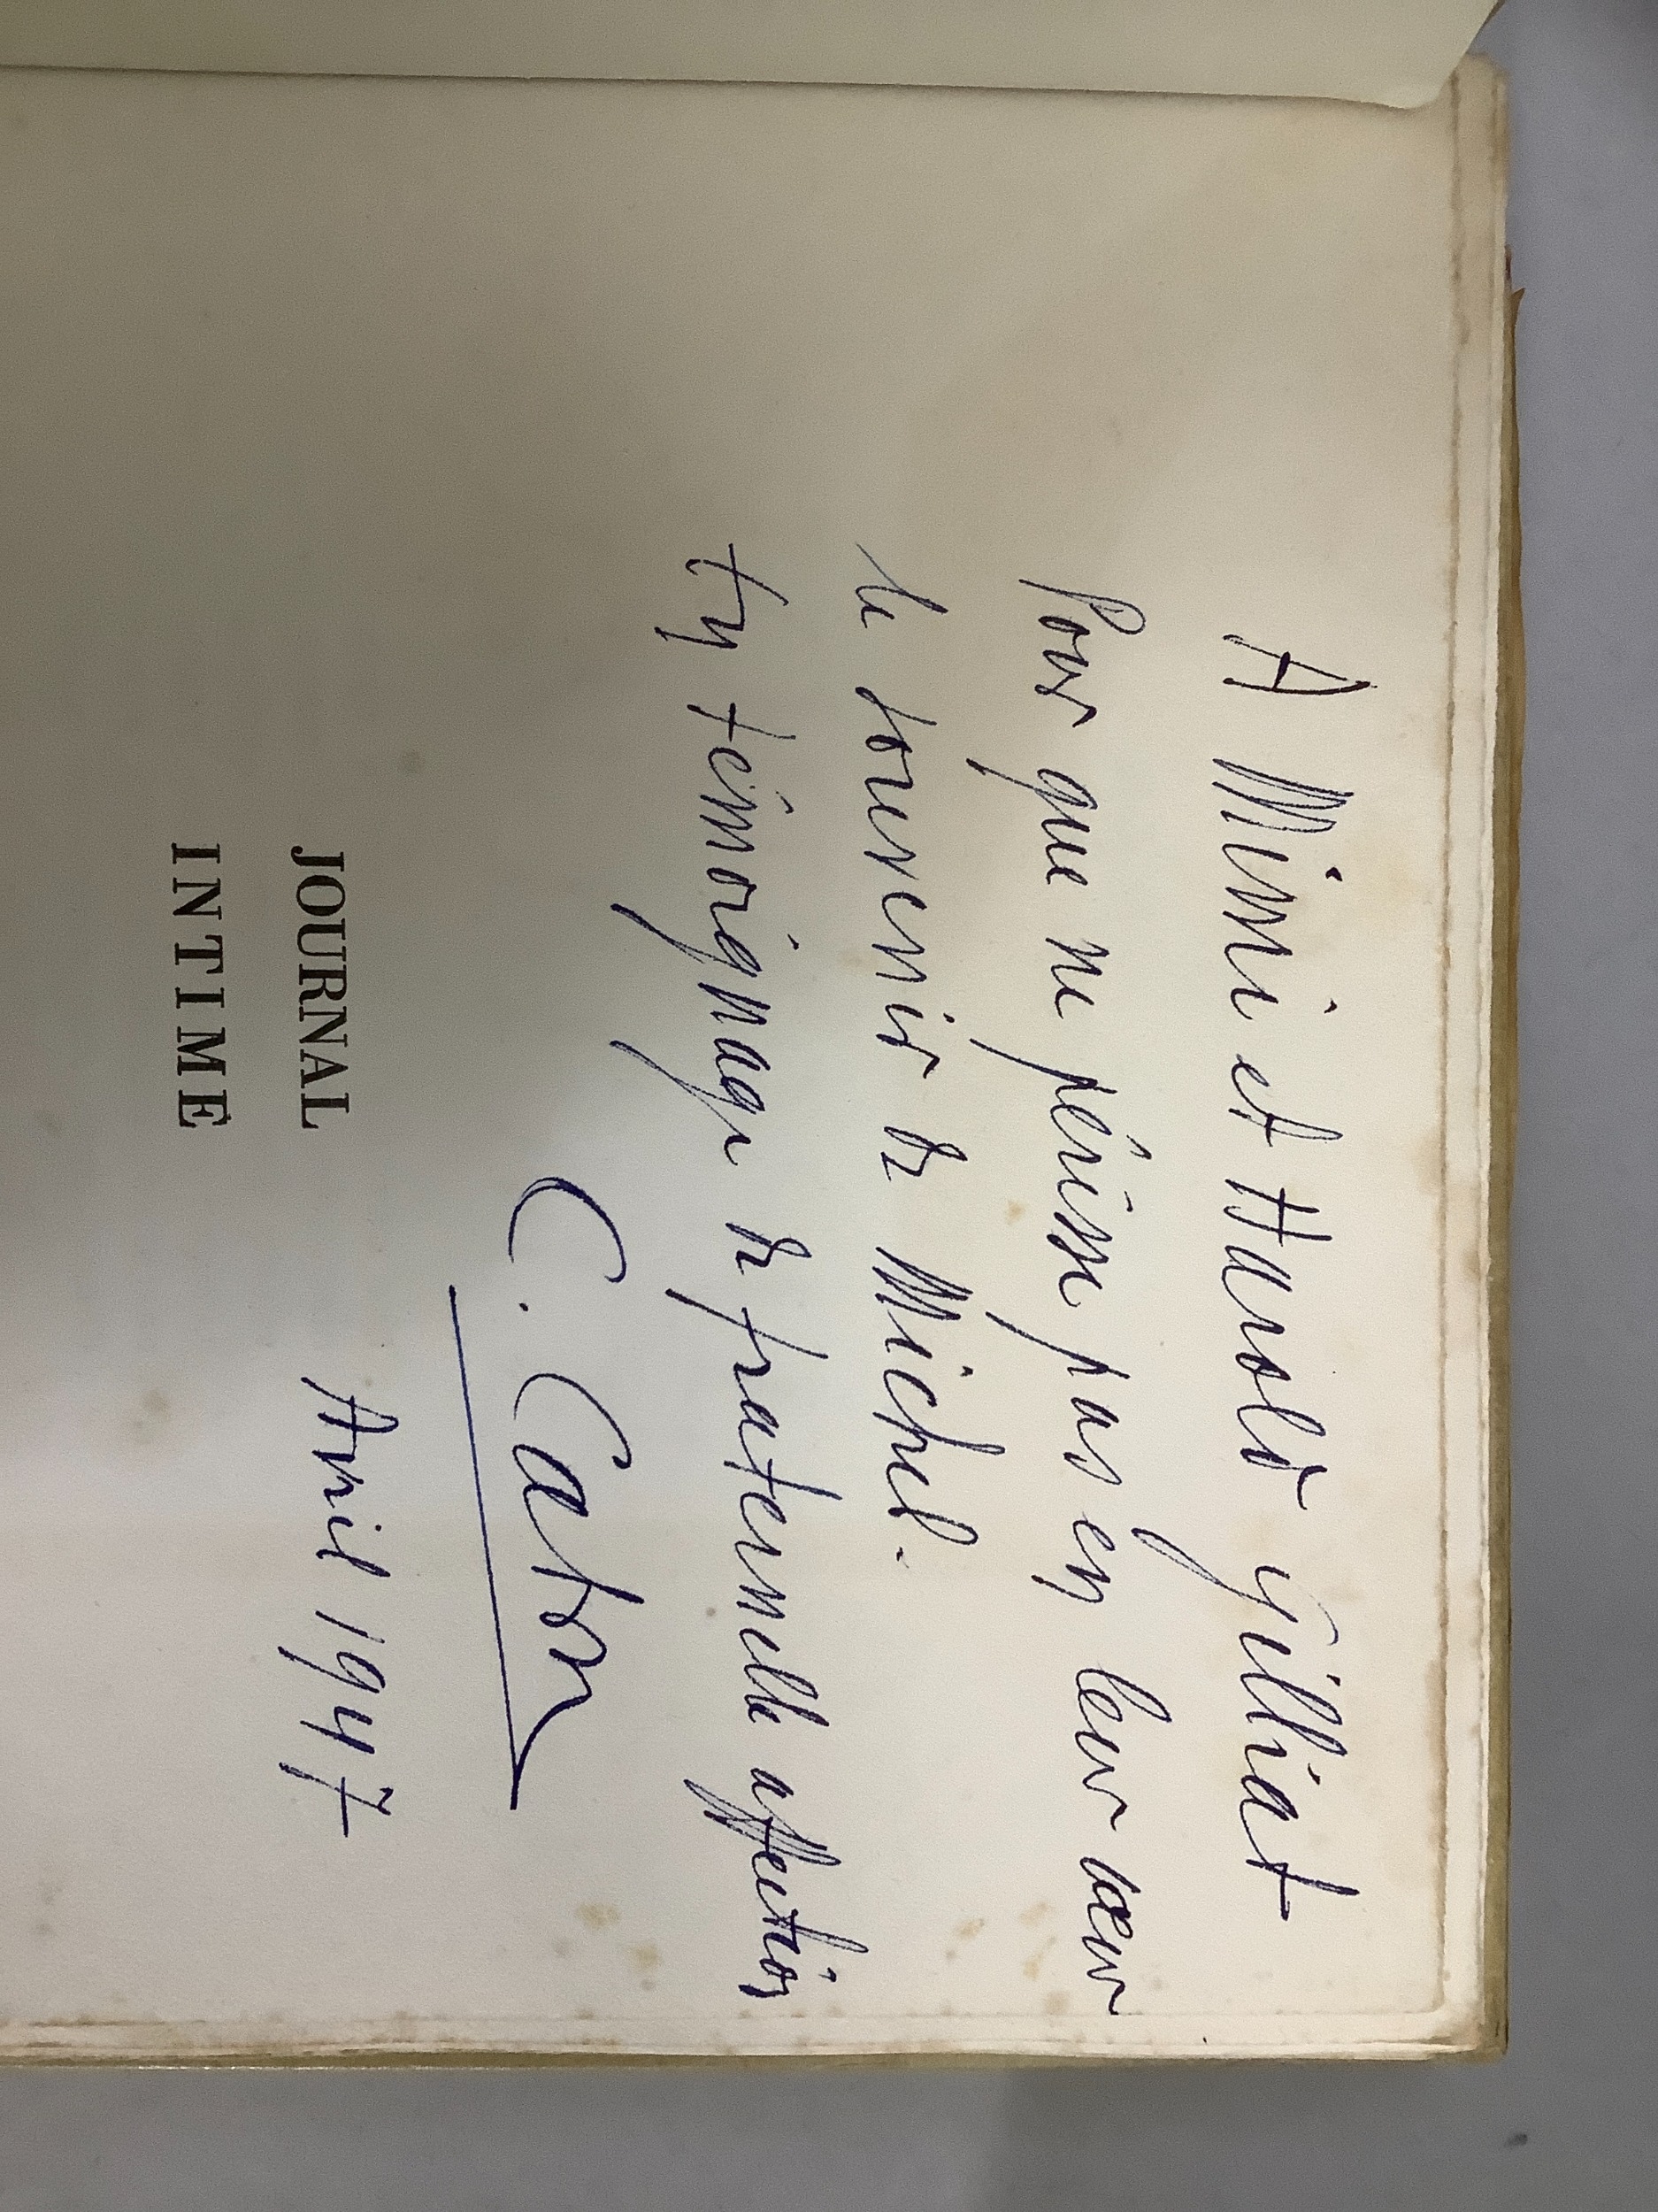 A Mimi et Harold Gilliat
Pour que ne périsse pas en leur cœur
le souvenir de Michel.
En témoignage de fraternelle affection
C. Caton
JOURNAL
INTIME
Avril 1947